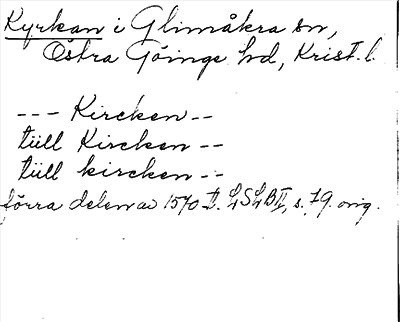 Kyrkan i Glimåkra sn,
Östra Göinge hd, Krist. l.
--- Kircken --
tüll Kircken --
tüll kircken --
förra delen av 1570 t. LSLB II, s. 79. orig.